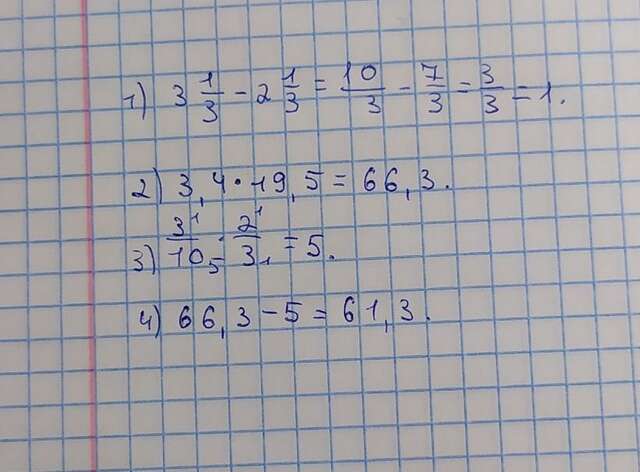 1) 3 1/3 - 2 1/3 = 10/3 - 7/3 = 3/3 = 1.
2) 3,4 · 19,5 = 66,3.
3) 3¹/10₅ · 2¹/3₁ = 5.
4) 66,3 - 5 = 61,3.